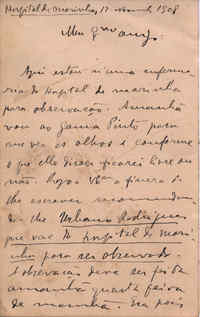 Hospital de marinha, 17 1908
Meu
Aqui estou n'uma enferma
ria do hospital de marinha
para observação. Amanhã
vou ao Gama Pinto para
que vea os olhos e conforme
o que elle disser ficarei livre ou
não. Rogo a fineza de
lhe escrever recomendan
do-lhe Urbano Rodrigues
que vae do hospital de mari
nha para ser observado.
A observação deve ser feita
amanhã quarta feira
de manhã. Era pois